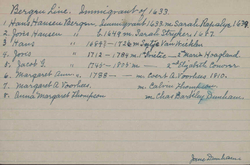 Bergen Line. Immigrant of 1633.
1 Hans Hansen Bergen. Immigrant 1633 m Sarah Rapalye 1639
2 Joris Hansen b 1649 m Sarah Stryker 1672
3 Hans " 1689 - 1726 m Sytje Van Wicklen
4 Joris " 1712 - 1784 m Maria Hoagland
5 Jacob G. " m Elizabeth Conover
6 Margaret Ann " 1788 — m Evert A. Voorhees 1810.
7 Margaret A. Voorhees. m Calvin Thompson
8 Anna Margaret Thompson m Chas Barkley Dunham.
Dunham.